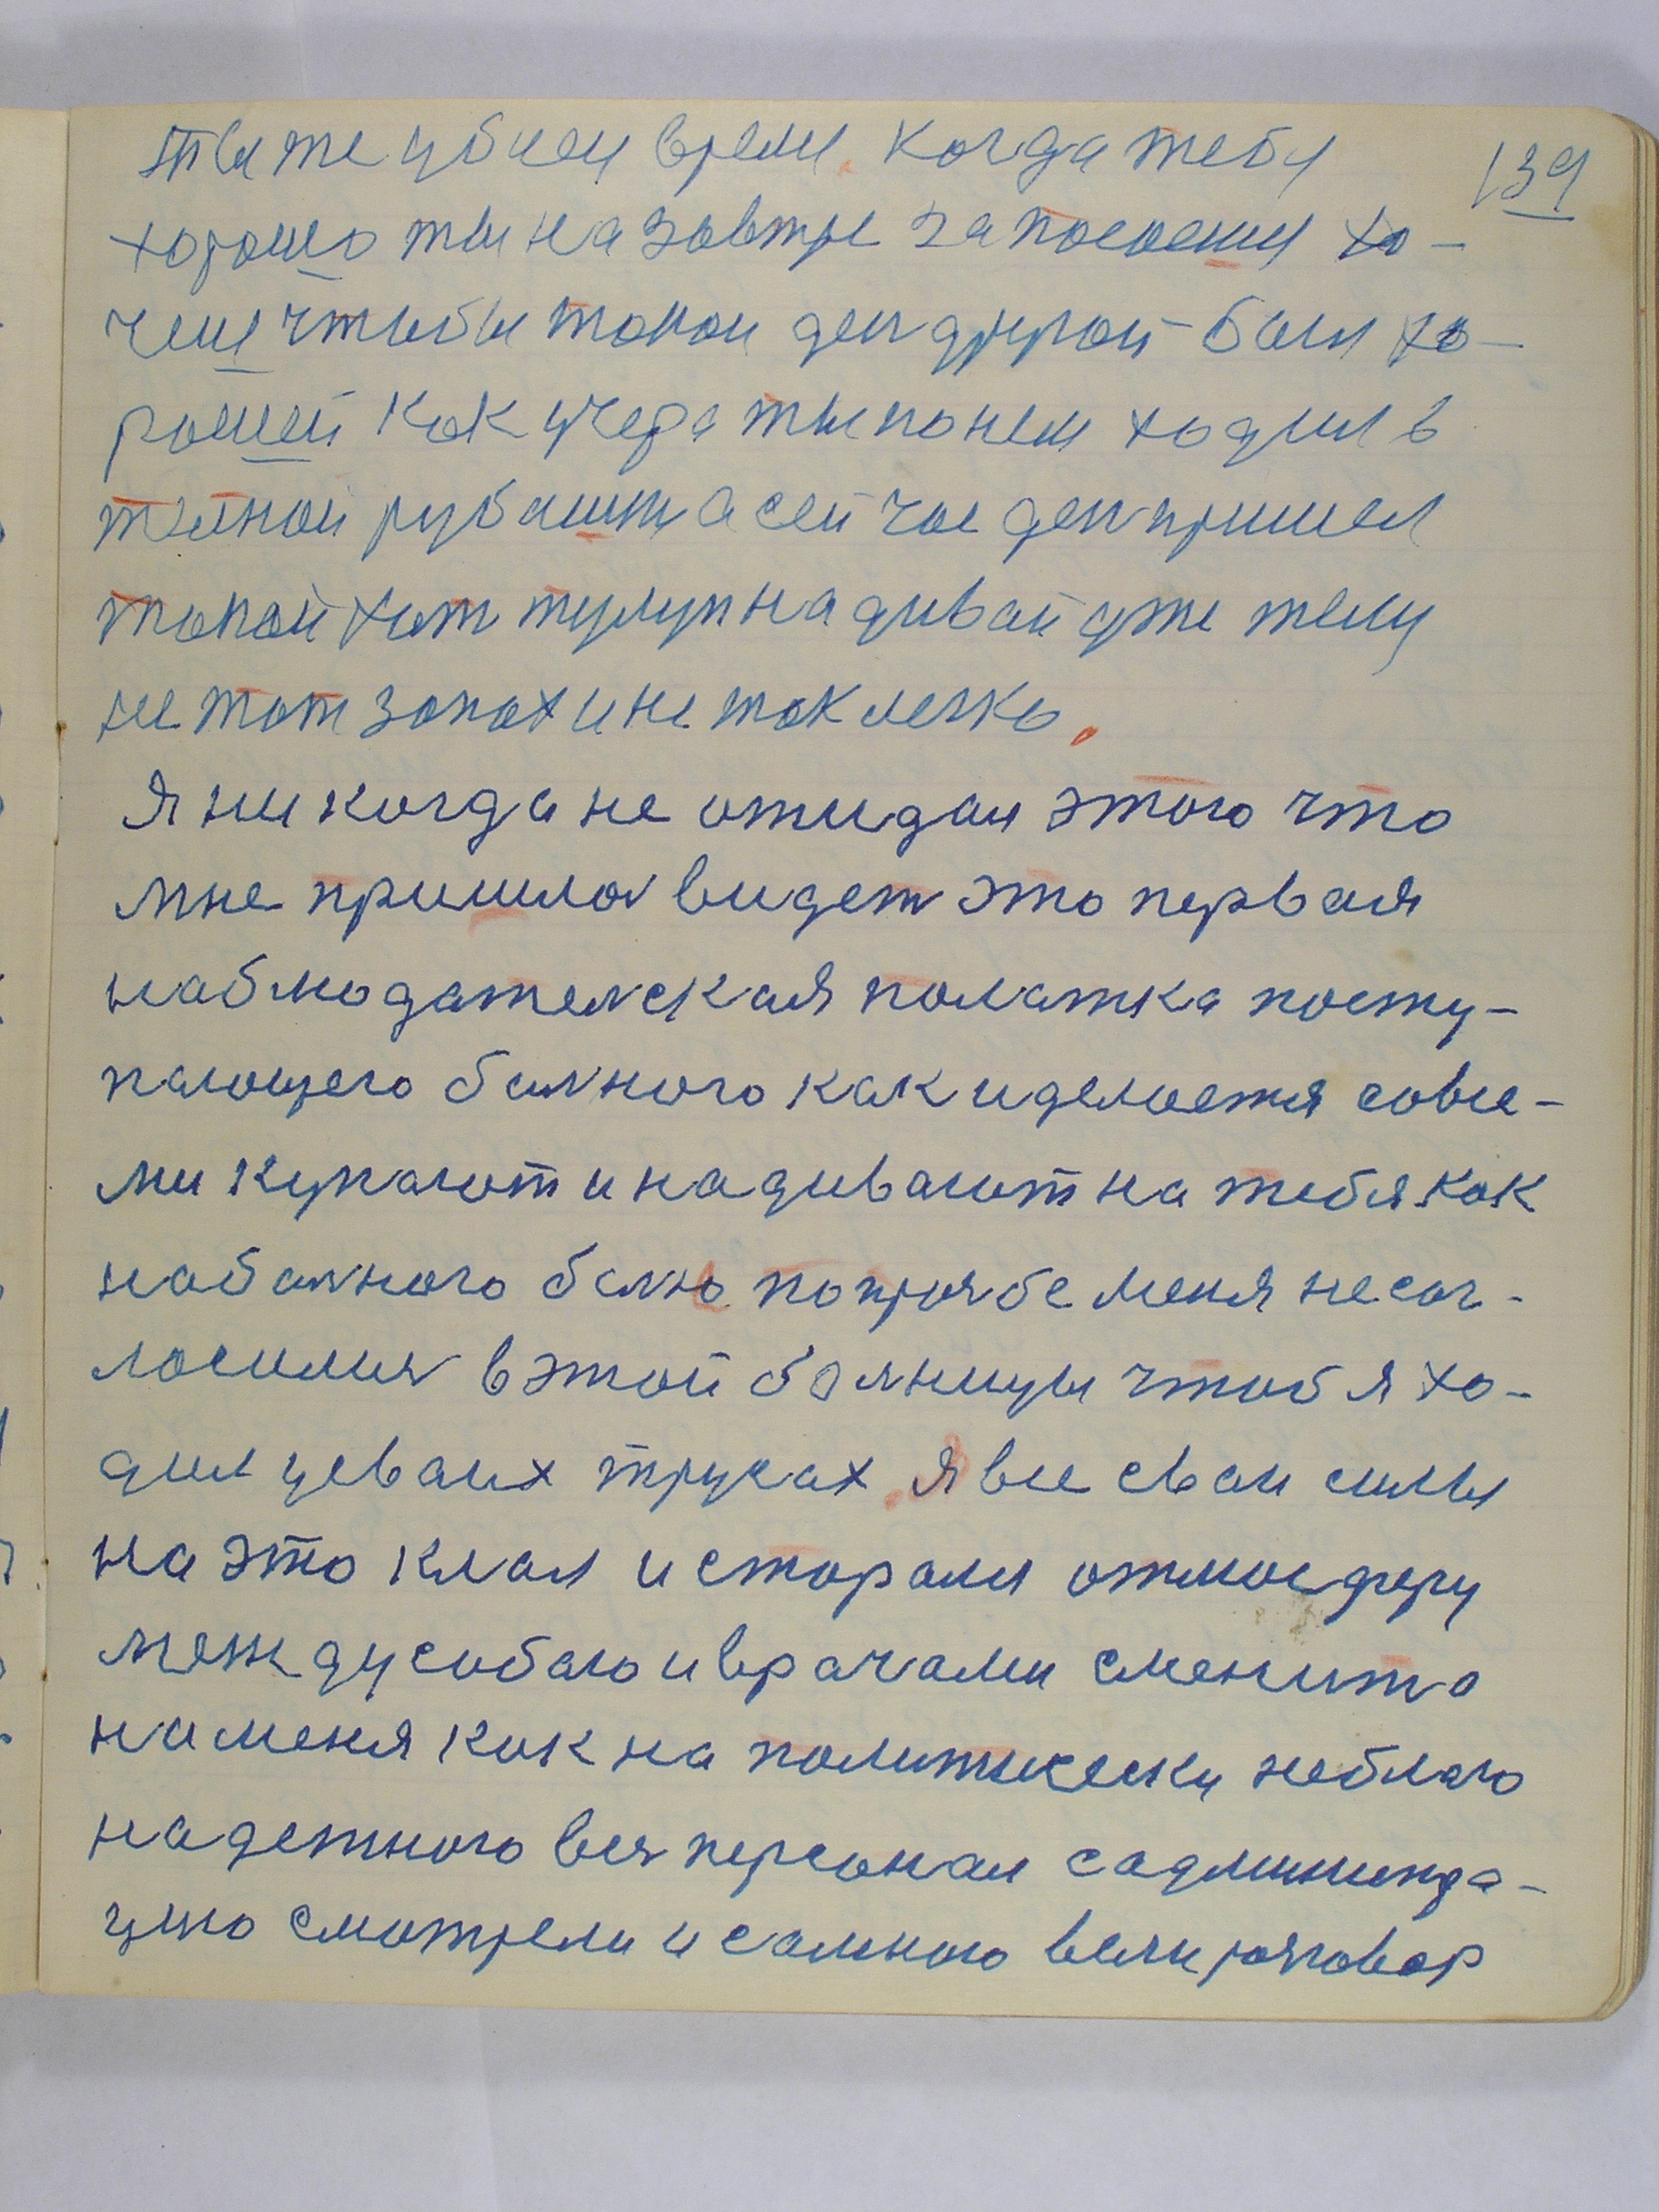 139
ты же убил время. Когда тебу
хорошо ты на завтре запосоеш хо-
чеш чтобы токои ден другой был хо-
роший как учера ты по нем ходил в
темной рубашт а сейчас ден пришел
токой хот тулуп надивай уже телу
не тот запах и не так легко.
Я никогда не ожидал этого что
мне пришлос видет это первая
наблюдателская полатка посту-
пающего болного как и делается совсе-
ми купают и надивают на тебя как
на болного белю попрозбе меня не сог-
лосилис в этой болницы чтоб я хо-
дил усваих трусах. Я все сваи силы
на это клал и старался отмосферу
между собаю и врачами сменит а
на меня как на политически неблаго
надежного вес персонал садминистра-
цию смотрели и самною вели розговор